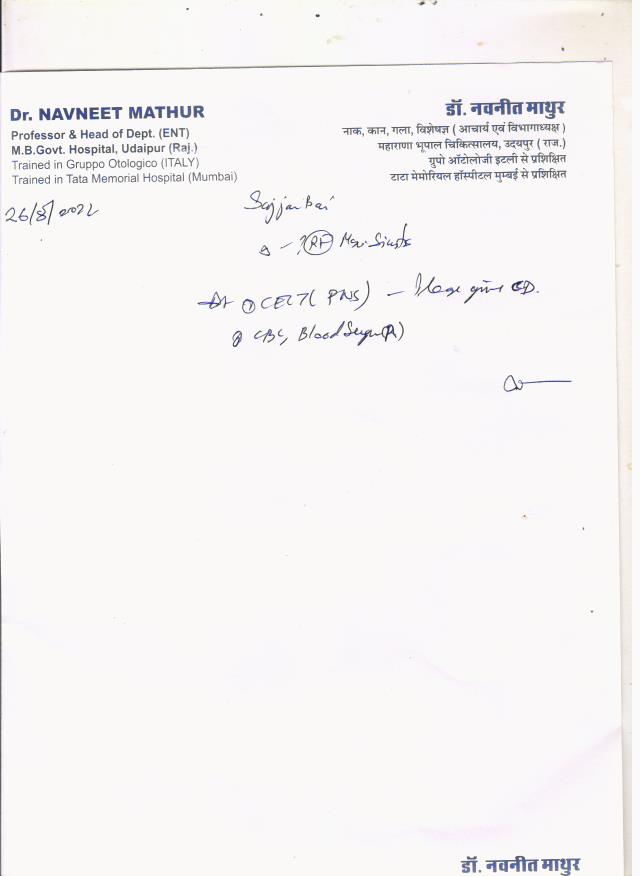 Dr. NAVNEET MATHUR
Professor & Head of Dept. (ENT)
M.B.Govt. Hospital, Udaipur (Raj.)
Trained in Gruppo Otologico (ITALY)
Trained in Tata Memorial Hospital (Mumbai)
डॉ. नवनीत माथुर
नाक, कान, गला, विशेषज्ञ ( आचार्य एवं विभागाध्यक्ष )
महाराणा भूपाल चिकित्सालय, उदयपुर ( राज.)
ग्रुपो ऑटोलोजी इटली से प्रशिक्षित
टाटा मेमोरियल हॉस्पीटल मुम्बई से प्रशिक्षित
26/8/2022
Sajjan Bai
? Rt
① CECT ( PNS ) – Please give CD.
② CBC, Blood Sugar (R)
डॉ. नवनीत माथुर